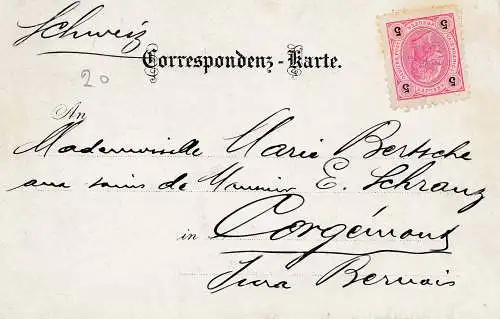 Schweiz
Correspondenz-Karte.
20
5 5
5 5
An
Mademoiselle Marie Bertsche
aux soins de Monsieur E. Schranz
in Corgémont
Jura Bernois